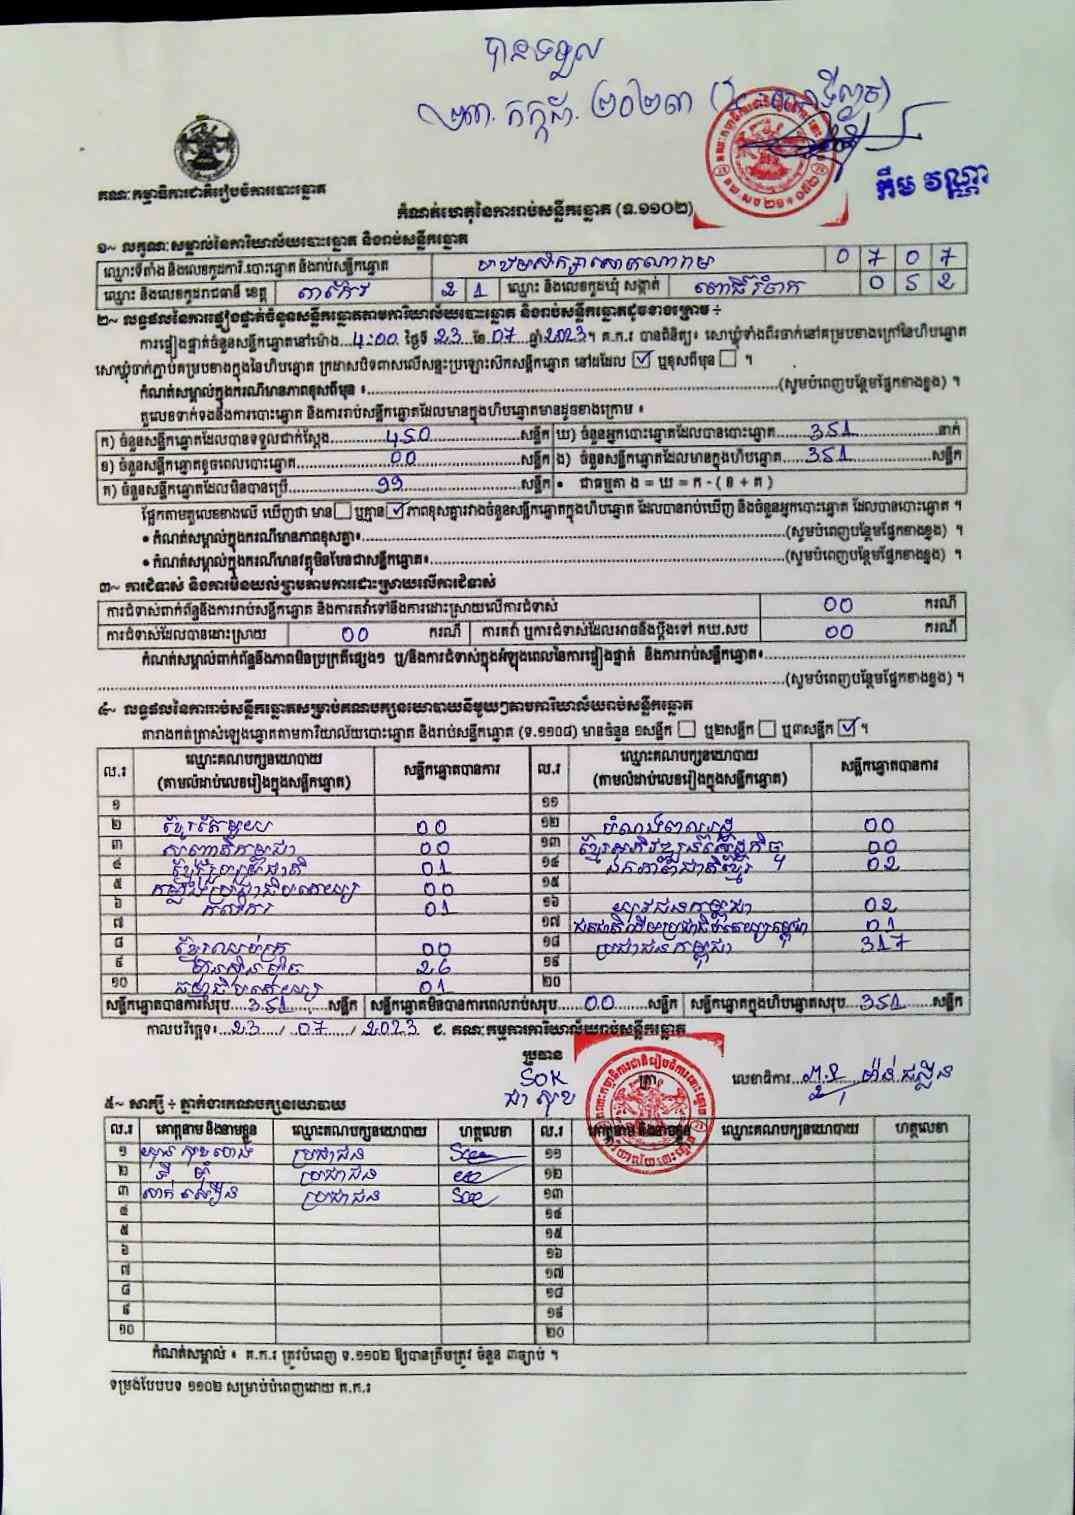 បានទទួល
២៣. កក្កដា. ២០២៣
គណៈកម្មាធិការជាតិរៀបចំការបោះឆ្នោត
កឹម វណ្ណា
កំណត់ហេតុនៃការរាប់សន្លឹកឆ្នោត (ទ.១១០២)
១~ លក្ខណៈសម្គាល់នៃការិយាល័យបោះឆ្នោត និងរាប់សន្លឹកឆ្នោត
ឈ្មោះទីតាំង និងលេខកូដការិ.បោះឆ្នោត និងរាប់សន្លឹកឆ្នោត 0 7 0 7
ឈ្មោះ និងលេខកូដរាជធានី ខេត្ត តាកែវ 2 1 ឈ្មោះ និងលេខកូដឃុំ សង្កាត់ 0 5 2
២~ លទ្ធផលនៃការផ្ទៀងផ្ទាត់ចំនួនសន្លឹកឆ្នោតតាមការិយាល័យបោះឆ្នោត និងរាប់សន្លឹកឆ្នោតដូចខាងក្រោម ÷
ការផ្ទៀងផ្ទាត់ចំនួនសន្លឹកឆ្នោតនៅម៉ោង 4:00 ថ្ងៃទី 23 ខែ 07 ឆ្នាំ 2023។ គ.ក.រ បានពិនិត្យ៖ សោឃ្លុំទាំងពីរចាក់នៅគម្របខាងក្រៅនៃហិបឆ្នោត
សោឃ្លុំចាក់ភ្ជាប់គម្របខាងក្នុងនៃហិបឆ្នោត ក្រដាសបិទពាសលើសន្ទះប្រឡោះស៊កសន្លឹកឆ្នោត នៅដដែល ☑ ឬខុសពីមុន ☐ ។
កំណត់សម្គាល់ក្នុងករណីមានភាពខុសពីមុន ៖ (សូមបំពេញបន្ថែមផ្នែកខាងខ្នង) ។
តួលេខទាក់ទងនឹងការបោះឆ្នោត និងការរាប់សន្លឹកឆ្នោតដែលមានក្នុងហិបឆ្នោតមានដូចខាងក្រោម ៖
ក) ចំនួនសន្លឹកឆ្នោតដែលបានទទួលជាក់ស្តែង 450 សន្លឹក ឃ) ចំនួនអ្នកបោះឆ្នោតដែលបានបោះឆ្នោត 351 នាក់
ខ) ចំនួនសន្លឹកឆ្នោតខូចពេលបោះឆ្នោត 00 សន្លឹក ង) ចំនួនសន្លឹកឆ្នោតដែលមានក្នុងហិបឆ្នោត 351 សន្លឹក
គ) ចំនួនសន្លឹកឆ្នោតដែលមិនបានប្រើ 99 សន្លឹក • ជាធម្មតា ង = ឃ = ក - ( ខ + គ )
ផ្អែកតាមតួលេខខាងលើ ឃើញថា មាន ☐ ឬគ្មាន ☑ ភាពខុសគ្នារវាងចំនួនសន្លឹកឆ្នោតក្នុងហិបឆ្នោត ដែលបានរាប់ឃើញ និងចំនួនអ្នកបោះឆ្នោត ដែលបានបោះឆ្នោត ។
• កំណត់សម្គាល់ក្នុងករណីមានភាពខុសគ្នា៖ (សូមបំពេញបន្ថែមផ្នែកខាងខ្នង) ។
• កំណត់សម្គាល់ក្នុងករណីមានវត្ថុមិនមែនជាសន្លឹកឆ្នោត៖ (សូមបំពេញបន្ថែមផ្នែកខាងខ្នង) ។
៣~ ការជំទាស់ និងការមិនយល់ព្រមតាមការដោះស្រាយលើការជំទាស់
ការជំទាស់ពាក់ព័ន្ធនឹងការរាប់សន្លឹកឆ្នោត និងការតវ៉ាទៅនឹងការដោះស្រាយលើការជំទាស់ 00 ករណី
ការជំទាស់ដែលបានដោះស្រាយ 00 ករណី ការតវ៉ា ឬការជំទាស់ដែលអាចនឹងប្តឹងទៅ គឃ.សប 00 ករណី
កំណត់សម្គាល់ពាក់ព័ន្ធនឹងភាពមិនប្រក្រតីផ្សេងៗ ឬ/និងការជំទាស់ក្នុងអំឡុងពេលនៃការផ្ទៀងផ្ទាត់ និងការរាប់សន្លឹកឆ្នោត៖
(សូមបំពេញបន្ថែមផ្នែកខាងខ្នង) ។
៤~ លទ្ធផលនៃការរាប់សន្លឹកឆ្នោតសម្រាប់គណបក្សនយោបាយនីមួយៗតាមការិយាល័យរាប់សន្លឹកឆ្នោត
តារាងកត់ត្រាសំឡេងឆ្នោតតាមការិយាល័យបោះឆ្នោត និងរាប់សន្លឹកឆ្នោត (ទ.១១០៨) មានចំនួន ១សន្លឹក ☐ ឬ២សន្លឹក ☐ ឬ៣សន្លឹក ☑ ។
ល.រ ឈ្មោះគណបក្សនយោបាយ (តាមលំដាប់លេខរៀងក្នុងសន្លឹកឆ្នោត) សន្លឹកឆ្នោតបានការ ល.រ ឈ្មោះគណបក្សនយោបាយ (តាមលំដាប់លេខរៀងក្នុងសន្លឹកឆ្នោត) សន្លឹកឆ្នោតបានការ
១ ១១
២ ខ្មែរតែមួយ 00 ១២ 00
៣ សញ្ជាតិកម្ពុជា 00 ១៣ ខ្មែរអភិវឌ្ឍន៍សេដ្ឋកិច្ច 00
៤ ខ្មែររួបរួមជាតិ 01 ១៤ ឯកភាពជាតិខ្មែរ 02
៥ កម្លាំងប្រជាធិបតេយ្យ 00 ១៥
៦ កសិករ 01 ១៦ យុវជនកម្ពុជា 02
៧ ១៧ 01
៨ ខ្មែរឈប់ក្រ 00 ១៨ ប្រជាជនកម្ពុជា 317
៩ ហ្វ៊ុនស៊ិនប៉ិច 26 ១៩
១០ 01 ២០
សន្លឹកឆ្នោតបានការសរុប 351 សន្លឹក សន្លឹកឆ្នោតមិនបានការពេលរាប់សរុប 00 សន្លឹក សន្លឹកឆ្នោតក្នុងហិបឆ្នោតសរុប 351 សន្លឹក
កាលបរិច្ឆេទ៖ 23 / 07 / 2023 ៩. គណៈកម្មការការិយាល័យរាប់សន្លឹកឆ្នោត
ប្រធាន ត្រា លេខាធិការ
SOK
ជា សុខ
៥~ សាក្សី ÷ ភ្នាក់ងារគណបក្សនយោបាយ
ល.រ គោត្តនាម និងនាមខ្លួន ឈ្មោះគណបក្សនយោបាយ ហត្ថលេខា ល.រ គោត្តនាម និងនាមខ្លួន ឈ្មោះគណបក្សនយោបាយ ហត្ថលេខា
១ ប្រជាជន ១១
២ ប្រជាជន ១២
៣ ប្រជាជន ១៣
៤ ១៤
៥ ១៥
៦ ១៦
៧ ១៧
៨ ១៨
៩ ១៩
១០ ២០
កំណត់សម្គាល់ ៖ គ.ក.រ ត្រូវបំពេញ ទ.១១០២ ឱ្យបានត្រឹមត្រូវ ចំនួន ៣ច្បាប់ ។
ទម្រង់បែបបទ ១១០២ សម្រាប់បំពេញដោយ គ.ក.រ